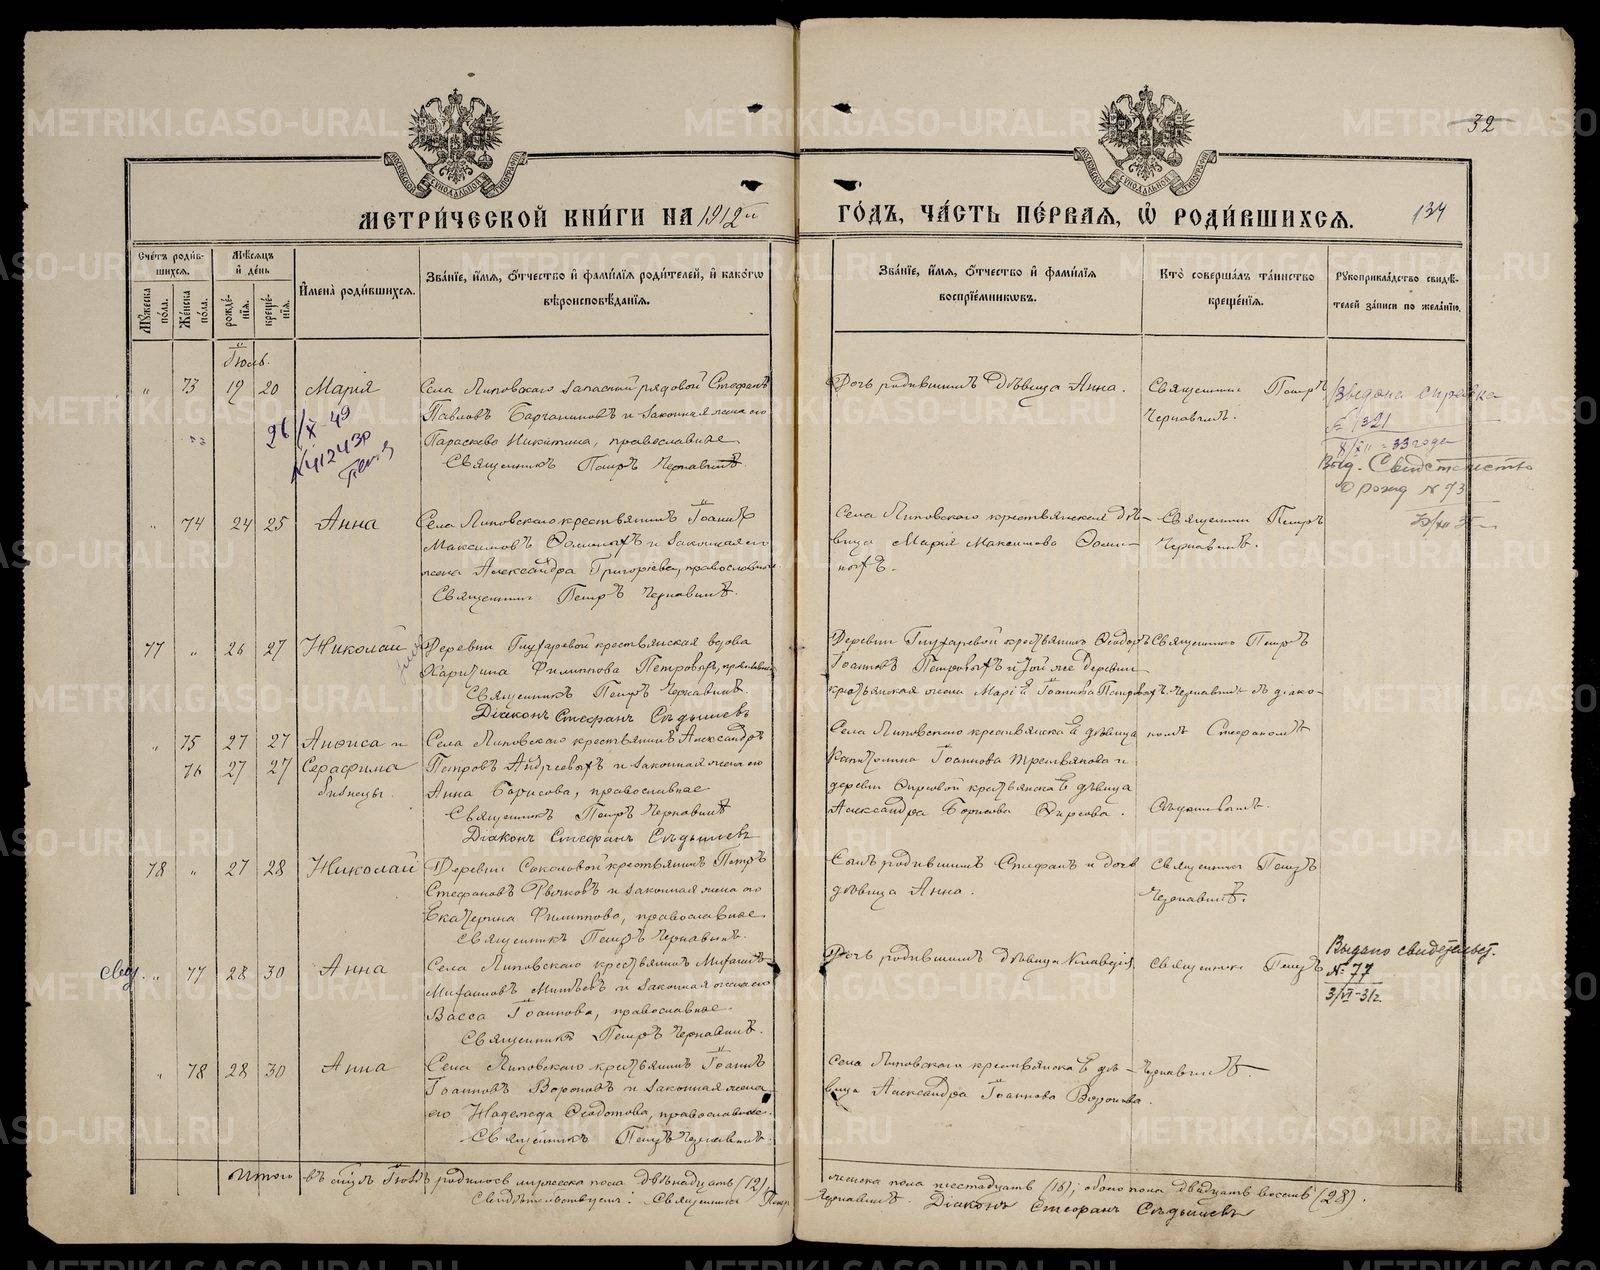 32
МОСКОВСКОЙ СѴНОДАЛЬНОЙ ТИПОГРАФІИ
МОСКОВСКОЙ СѴНОДАЛЬНОЙ ТИПОГРАФІИ
МЕТРИ́ЧЕСКОЙ КНИ́ГИ НА 1912й ГО́ДЪ, ЧА́СТЬ ПЕ́РВАѦ, Ѡ҆ РОДИ́ВШИХСѦ.
134
Счетъ роди́вшихсѧ.
Мꙋжеска по́ла.
Же́нска по́ла.
Мѣ́сѧцъ и҆ де́нь
рожде́нїѧ.
креще́нїѧ.
И҆мена̀ роди́вшихсѧ.
Зва́нїе, и҆́мѧ, ѻ҆́тчество и҆ фами́лїѧ роди́телей, и҆ како́гѡ вѣроисповѣ́данїѧ.
Зва́нїе, и҆́мѧ, ѻ҆́тчество и҆ фами́лїѧ воспрїе́мникѡвъ.
Кто̀ соверша́лъ та́инство креще́нїѧ.
Рꙋкоприкла́дство свидѣ́телей за́писи по жела́нїю.
Іюль.
" 73 19 20 Марія
Села Липовскаго запасный рядовой Стефанъ
Павловъ и законная жена его
Параскева Никитина, православные
Священникъ Петръ Чернавинъ.
Дочь родившимъ дѣвица Анна.
Священникъ Петръ
Чернавинъ.
26/X 49
№
Выдана справка
№ 1321
33 года
Выд. Свидетельство
о рожд № 73
" 74 24 25 Анна
Села Липовскаго крестьянинъ Іоаннъ
Максимовъ и законная его
жена Александра Григоріева, православные
Священникъ Петръ Чернавинъ.
Села Липовскаго крестьянская дѣ-
вица Марія Максимова
Священникъ Петръ
Чернавинъ.
77 " 26 27 Николай
Деревни Глухаревой крестьянская вдова
Харитина Филиппова Петровыхъ, православная
Священникъ Петръ Чернавинъ.
Діаконъ Стефанъ Сѣдышевъ
Деревни Глухаревой крестьянинъ Ѳеодоръ
Іоанновъ Петровыхъ и той же деревни
крестьянская жена Марія Іоаннова Петровыхъ.
Священникъ Петръ
Чернавинъ съ діако-
" 75 27 27 Анфиса и
76 27 27 Серафима
близнецы.
Села Липовскаго крестьянинъ Александръ
Петровъ Андреевыхъ и законная жена его
Анна Борисова, православные
Священникъ Петръ Чернавинъ
Діаконъ Стефанъ Сѣдышевъ
Села Липовскаго крестьянская дѣвица
Капитолина Іоаннова Третьякова и
деревни Фирсовой крестьянская дѣвица
Александра Борисова Фирсова.
номъ Стефаномъ
Сѣдышевымъ.
78 " 27 28 Николай
Деревни Соколовой крестьянинъ Петръ
Стефановъ Рычковъ и законная жена его
Екатерина Филиппова, православные.
Священникъ Петръ Чернавинъ.
Сынъ родившимъ Стефанъ и дочь
дѣвица Анна.
Священникъ Петръ
Чернавинъ.
свид. " 77 28 30 Анна
Села Липовскаго крестьянинъ Михаилъ
Михаиловъ и законная жена его
Васса Іоаннова, православные.
Священникъ Петръ Чернавинъ.
Дочь родившимъ дѣвица Клавдія.
Священникъ Петръ
Выдано свидетельст.
№ 77
3/VI-31г.
" 78 28 30 Анна
Села Липовскаго крестьянинъ Іоаннъ
Іоанновъ Вороновъ и законная жена
его Надежда Ѳеодотова, православные.
Священникъ Петръ Чернавинъ.
Села Липовскаго крестьянская дѣ-
вица Александра Іоаннова Воронова.
Чернавинъ.
Итого въ Іюлѣ родилось мужеска пола двѣнадцать (12), женска пола шестнадцать (16); обоего пола двадцать восемь (28).
Свидѣтельствуемъ: Священникъ Петръ Чернавинъ. Діаконъ Стефанъ Сѣдышевъ
METRIKI.GASO-URAL.RU